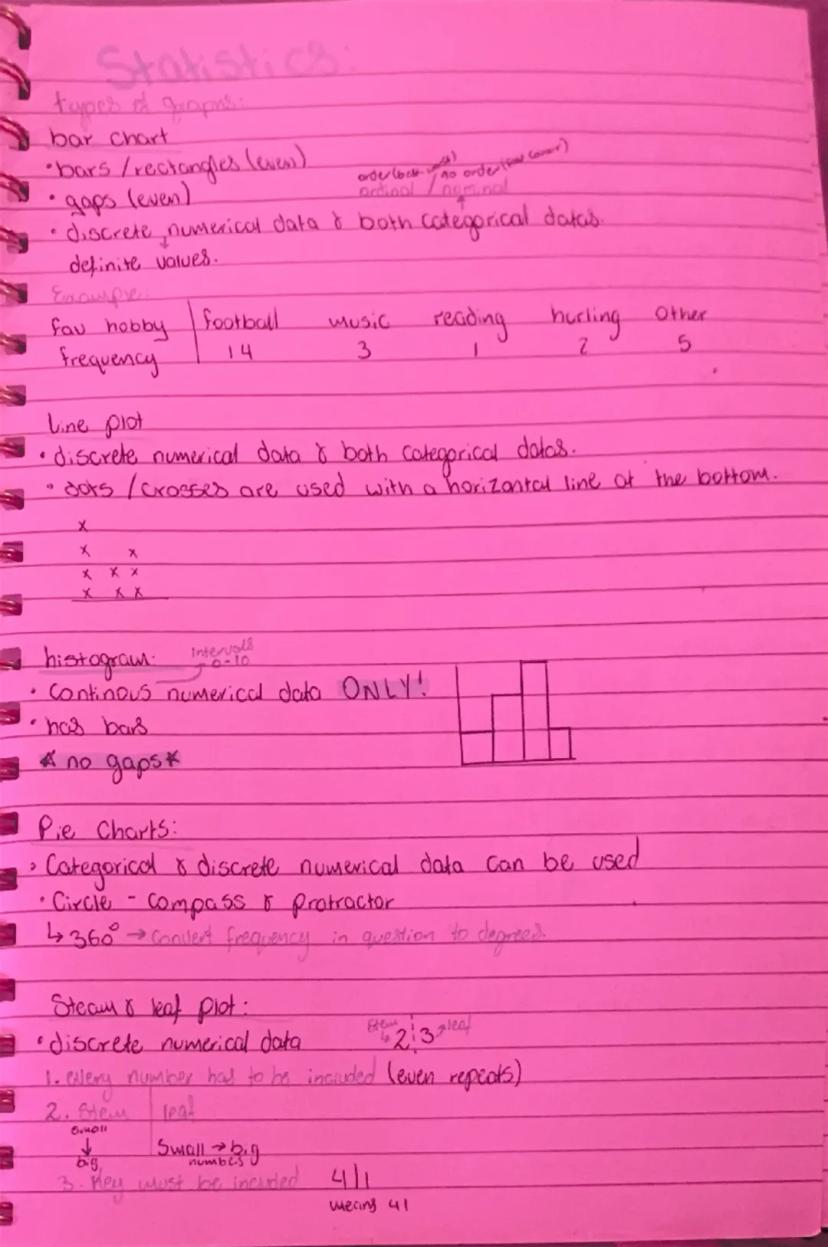 Statistics:
types of graphs:
bar chart
• bars / rectangles (even)
• gaps (even)
no order
ordinal / nominal
• discrete numerical data & both categorical datas.
definite values.
Example:
fav hobby | football music reading hurling other
frequency | 14 3 1 2 5
Line plot
• discrete numerical data & both categorical datas.
• dots / crosses are used with a horizontal line at the bottom.
x
x x
x x x
x x x
histogram:
intervals
0-10
• continous numerical data ONLY!
• has bars
* no gaps*
Pie Charts:
• Categorical & discrete numerical data can be used
• Circle - compass & protractor
↳ 360° → convert frequency in question to degrees.
Steam & leaf plot:
• discrete numerical data
stem 2 | 3 leaf
1. every number has to be included (even repeats)
2. Stem | leaf
small
↓
big
Small → big
numbers
3. Key must be included 4|1
means 41